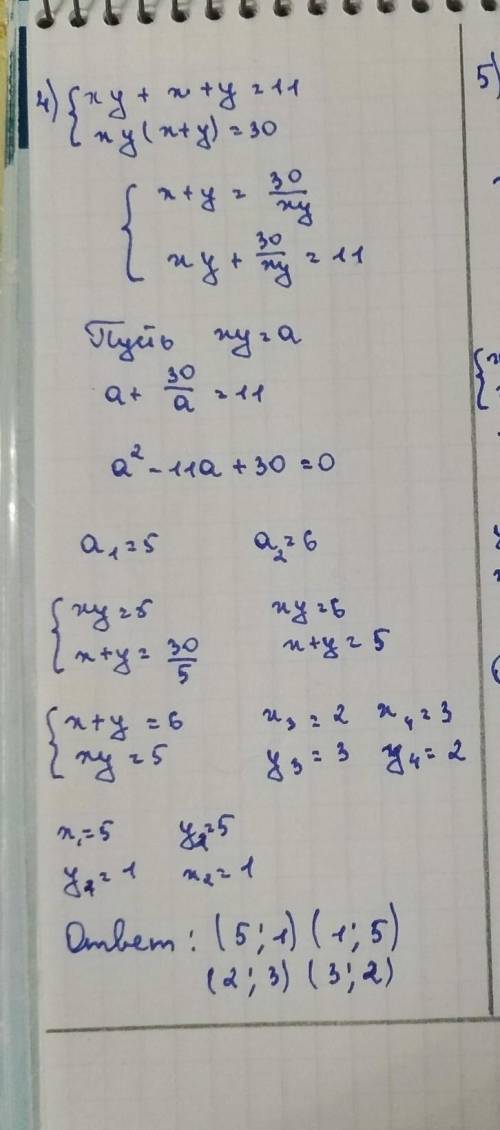 4) { xy + x + y = 11
xy(x+y) = 30
{ x+y = 30/xy
xy + 30/xy = 11
Пусть xy = a
a + 30/a = 11
a² - 11a + 30 = 0
a₁ = 5 a₂ = 6
{ xy = 5 xy = 6
x+y = 30/5 x+y = 5
{ x+y = 6 x₃ = 2 x₄ = 3
xy = 5 y₃ = 3 y₄ = 2
x₁ = 5 y₂ = 5
y₁ = 1 x₂ = 1
Ответ: (5; 1) (1; 5)
(2; 3) (3; 2)
5)